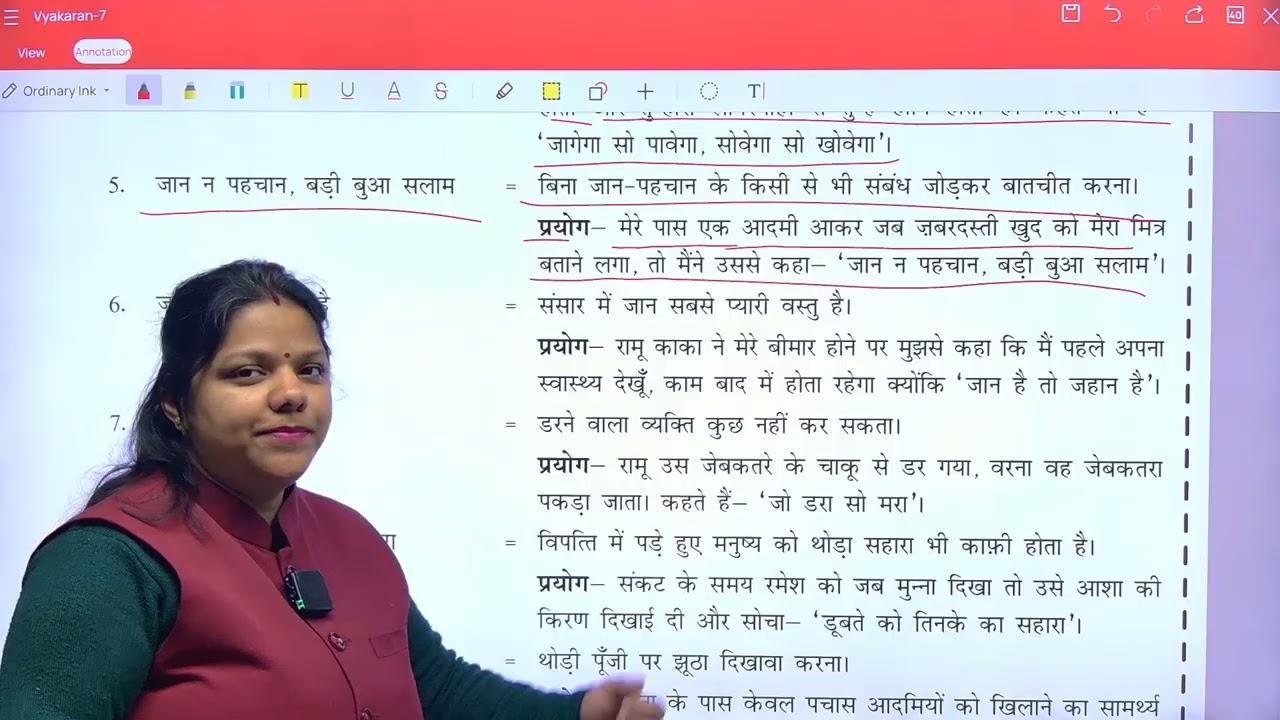 Vyakaran-7
40
View
Annotation
Ordinary Ink
T U A S T
'जागेगा सो पावेगा, सोवेगा सो खोवेगा'।
5. जान न पहचान, बड़ी बुआ सलाम = बिना जान-पहचान के किसी से भी संबंध जोड़कर बातचीत करना।
प्रयोग– मेरे पास एक आदमी आकर जब ज़बरदस्ती खुद को मेरा मित्र
बताने लगा, तो मैंने उससे कहा– 'जान न पहचान, बड़ी बुआ सलाम'।
6. = संसार में जान सबसे प्यारी वस्तु है।
प्रयोग– रामू काका ने मेरे बीमार होने पर मुझसे कहा कि मैं पहले अपना
स्वास्थ्य देखूँ, काम बाद में होता रहेगा क्योंकि 'जान है तो जहान है'।
7. = डरने वाला व्यक्ति कुछ नहीं कर सकता।
प्रयोग– रामू उस जेबकतरे के चाकू से डर गया, वरना वह जेबकतरा
पकड़ा जाता। कहते हैं– 'जो डरा सो मरा'।
= विपत्ति में पड़े हुए मनुष्य को थोड़ा सहारा भी काफ़ी होता है।
प्रयोग– संकट के समय रमेश को जब मुन्ना दिखा तो उसे आशा की
किरण दिखाई दी और सोचा– 'डूबते को तिनके का सहारा'।
= थोड़ी पूँजी पर झूठा दिखावा करना।
के पास केवल पचास आदमियों को खिलाने का सामर्थ्य